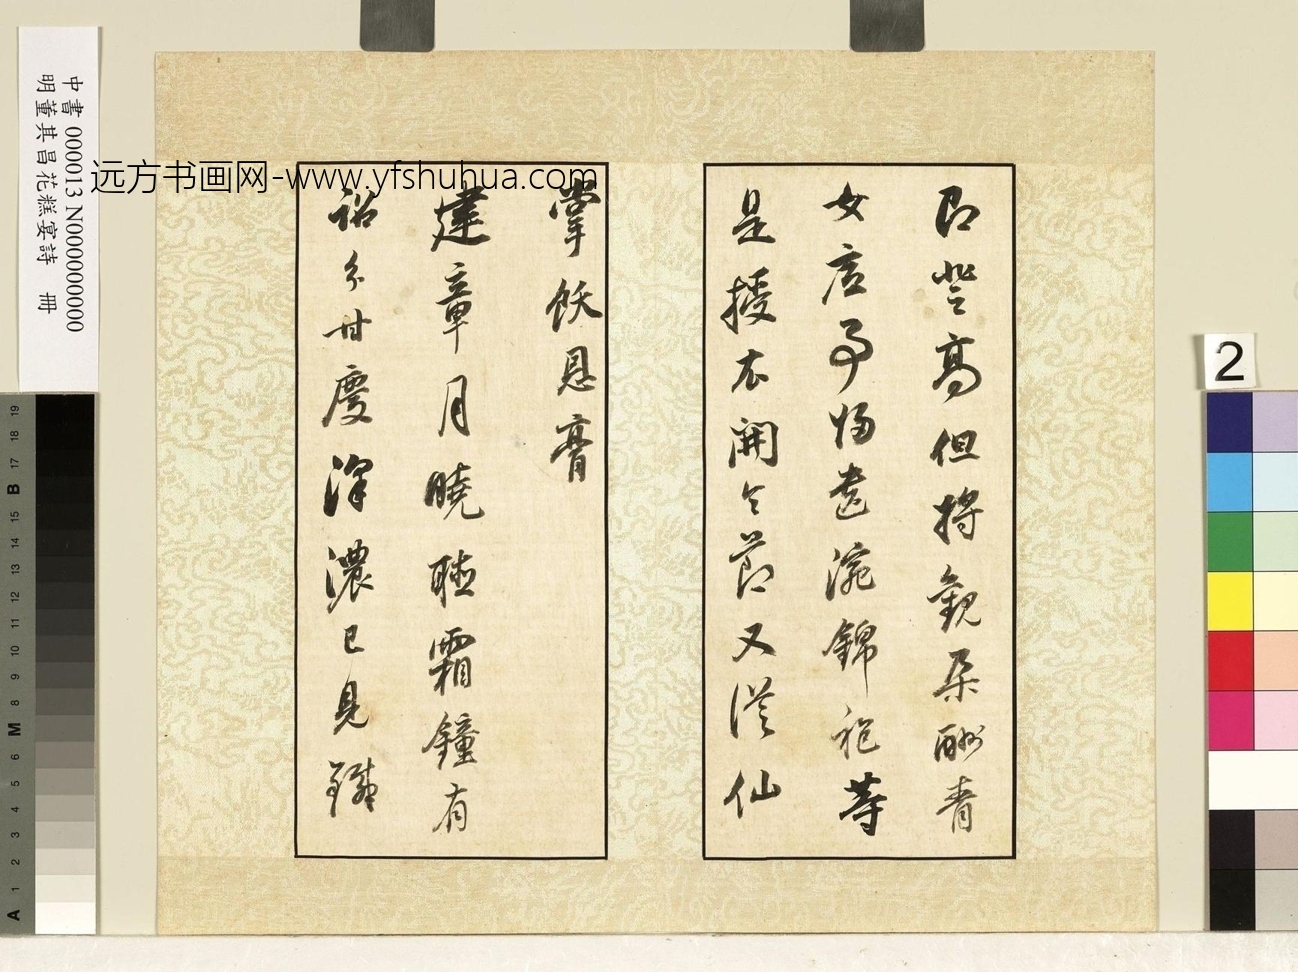 中書 000013 N000000000
明董其昌花糕宴詩 冊
远方书画网-www.yfshuhua.com
即登高但將觀朵酬青
女底事歸遺涴錦袍等
是授衣開令節又從仙
掌飫恩膏
建章月曉聽霜鐘有
詔分甘慶澤濃已見
2
19
18
17
B
15
14
13
12
11
10
9
8
M
6
5
4
3
2
1
A